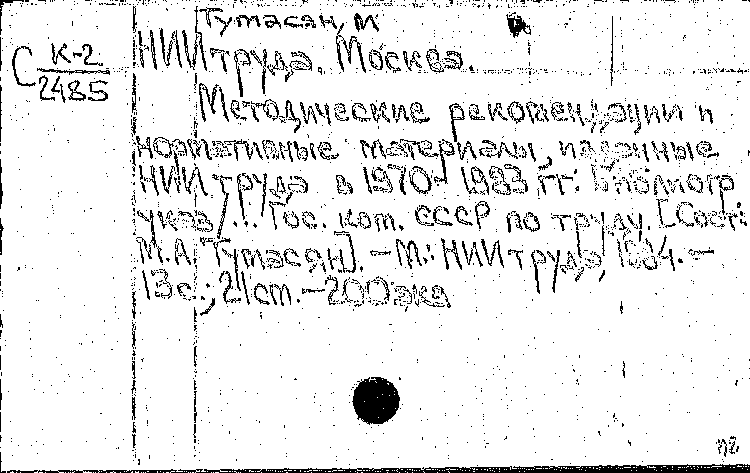 Тутасян, М
С К-2
2485
НИИ труда. Москва.
Методические рекомендации и
нормативные материалы, изданные
НИИ труда в 1970-1983 гг.: Библиогр
указ/... Гос. ком. СССР по труду. [Сост.:
М.А. Тутасян]. – М.: НИИ труда, 1984. –
13 с.; 21 см. – 200 экз